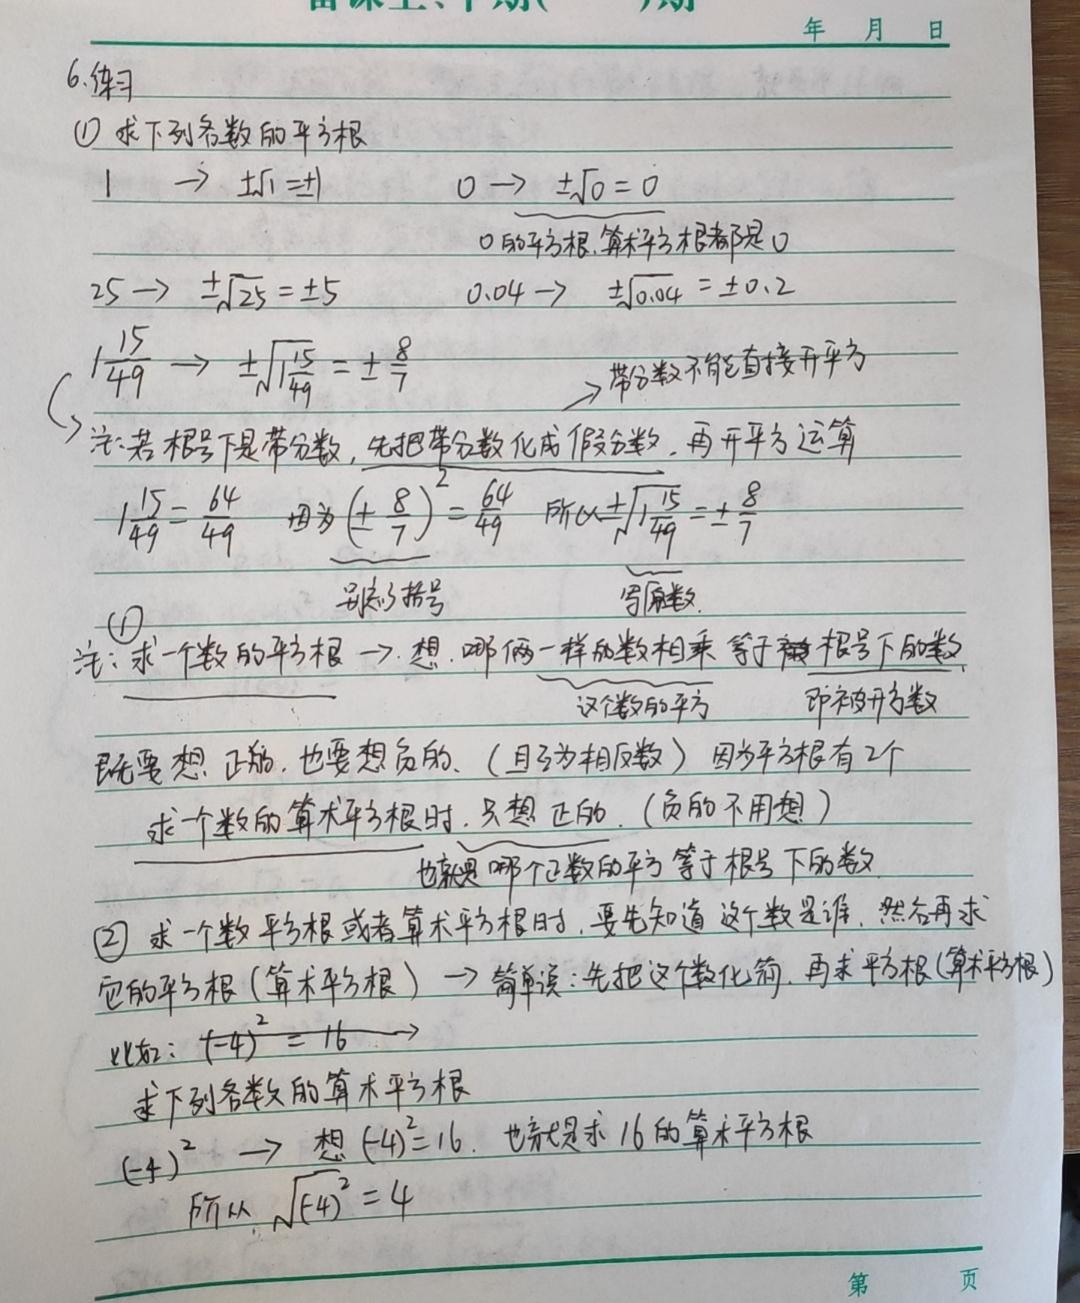 年 月 日
6.练习
① 求下列各数的平方根
1 → ±√1=±1 0 → ±√0=0
0的平方根.算术平方根都是0
25 → ±√25=±5 0.04 → ±√0.04=±0.2
1 15/49 → ±√(1 15/49)=±8/7
→带分数不能直接开平方
注:若根号下是带分数,先把带分数化成假分数.再开平方运算
1 15/49=64/49 因为(±8/7)²=64/49 所以±√(1 15/49)=±8/7
别忘了括号 写原数.
①
注:求一个数的平方根 → 想.哪俩一样的数相乘等于根号下的数
这个数的平方 即被开方数
既要想正的.也要想负的、(且互为相反数) 因为平方根有2个
求一个数的算术平方根时.只想正的.(负的不用想)
也就是哪个正数的平方等于根号下的数
② 求一个数平方根或者算术平方根时.要先知道这个数是谁.然后再求
它的平方根(算术平方根) → 简单说:先把这个数化简.再求平方根(算术平方根)
比如: (-4)²=16 →
求下列各数的算术平方根
(-4)² → 想(-4)²=16. 也就是求16的算术平方根
所以 √(-4)²=4
第 页